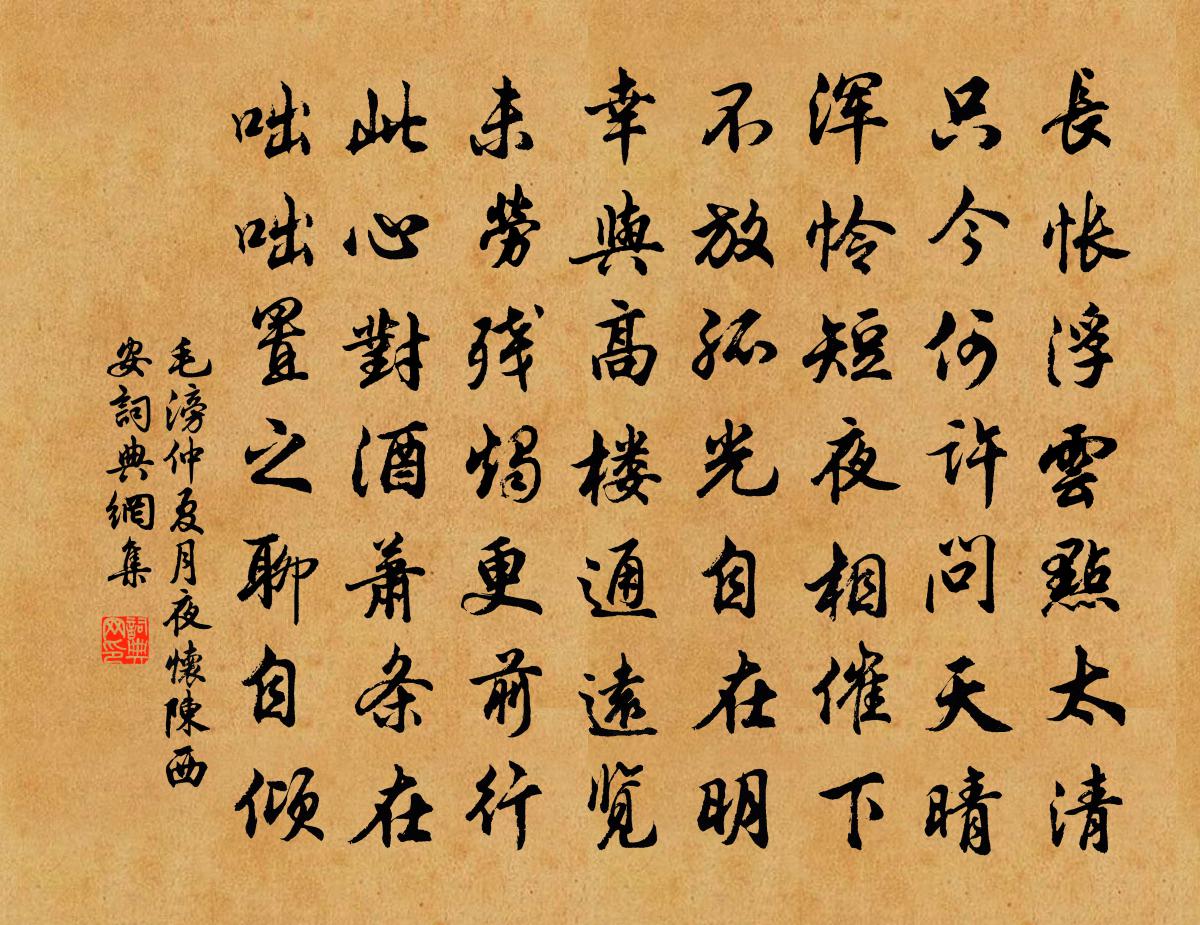 長悵浮雲點太清
只今何許問天晴
渾怜短夜相催下
不放孤光自在明
幸與高楼通遠览
未勞残燭更前行
此心對酒萧条在
咄咄置之聊自倾
毛滂仲夏月夜懷陳西
安詞典網集
詞典
网印